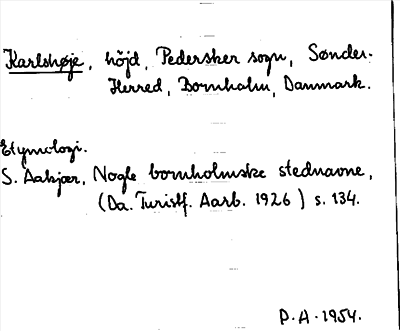 Karlshøje, höjd, Pedersker sogn, Sønder-
Herred, Bornholm, Danmark.
Etymologi.
S. Aakjær, Nogle bornholmske stednavne,
(Da. Turistf. Aarb. 1926) s. 134.
P.A. 1954.